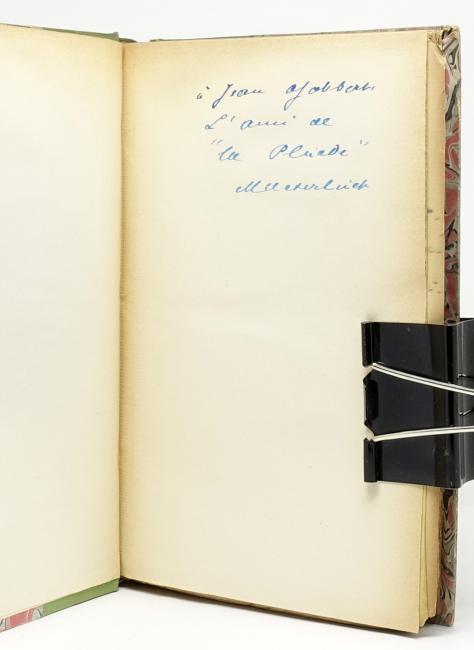 à Jean Ajalbert
L'ami de
"la Pléiade"
Maeterlinck